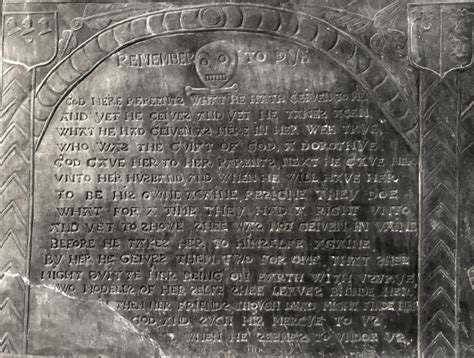 REMEMBER TO DYE
GOD HERE REPEENTS WHAT HE HATH GEIVEN TO
AND YET HE GEIVES AND YET HE TAKES AGEN
WHAT HE HAD GEIVEN IS HERE IN HER WEE TRVE
WHO WAS THE GVIFT OF GOD, A DOROTHYE
GOD GAVE HER TO HER PARENTS NEXT HE GAVE HER
VNTO HER HVSBAND, AND WHEN HE WILL HAVE HER
TO BE HIS OWNE AGAINE RESIGNE THEY DOE
WHAT FOR A TIME THEY HAD A RIGHT VNTO
AND YET TO SHOWE SHEE WAS NOT GEIVEN IN VAINE
BEFORE HE TAKES HER TO HIMSELFE AGAINE
BY HER HE GEIVES THEM TWO FOR ONE, THAT SHEE
MIGHT QVITTE HER BEING ON EARTH WITH VSVRYE
TWO MODELLS OF HER SELFE SHEE LEAVES BEHINDE HER
THEM HER FRIENDS THOVGH DEAD MIGHT FINDE HER
GOD AND SVCH HIS MERCYE TO VS
WHEN HE SEEMES TO VNDOR VS